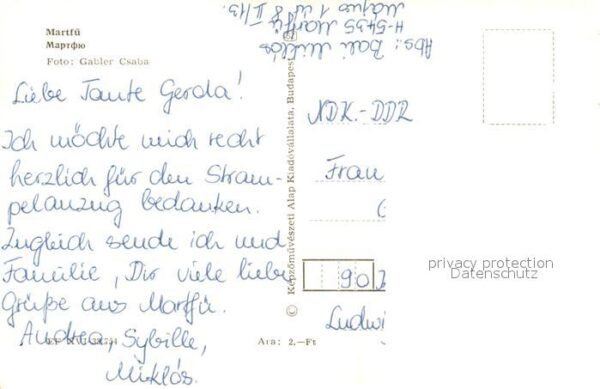 Martfű
Мартфю
Foto: Gabler Csaba
Liebe Tante Gerda!
Ich möchte mich recht
herzlich für den Stram-
pelanzug bedanken.
Zugleich sende ich und
Familie, Dir viele liebe
Grüße aus Martfű.
Andrea, Sybille,
Miklós.
Ara: 2,—Ft
© Képzőművészeti Alap Kiadóvállalata, Budapest
Abs: Miklós
H-5435 Martfű
Május 1 út 8 II/13.
NDK.-DDR
Frau
90
Ludwi
privacy protection
Datenschutz